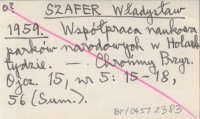 SZAFER Władysław
1959. Współpraca naukowa
parków narodowych w Holark-
tydzie. — Chrońmy Przyr.
Ojcz. 15, nr 5: 15-18,
56 (Sum.).
BT/0457 2383